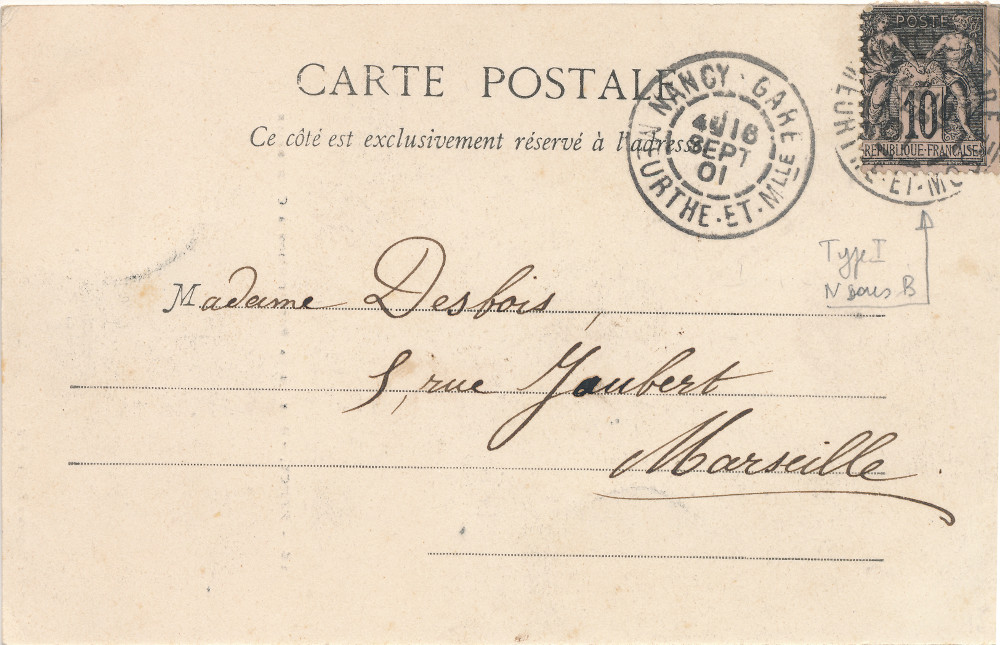 CARTE POSTALE
Ce côté est exclusivement réservé à l'adresse
NANCY - GARE
16
SEPT
01
MEURTHE-ET-MLLE
POSTE
10
REPUBLIQUE FRANÇAISE
Type I
N sous B
Madame Desbois,
5, rue Jaubert
Marseille